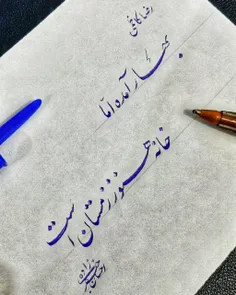 رضا کاظمی
بهار آمده امّا
خانه هنوز زمستان است